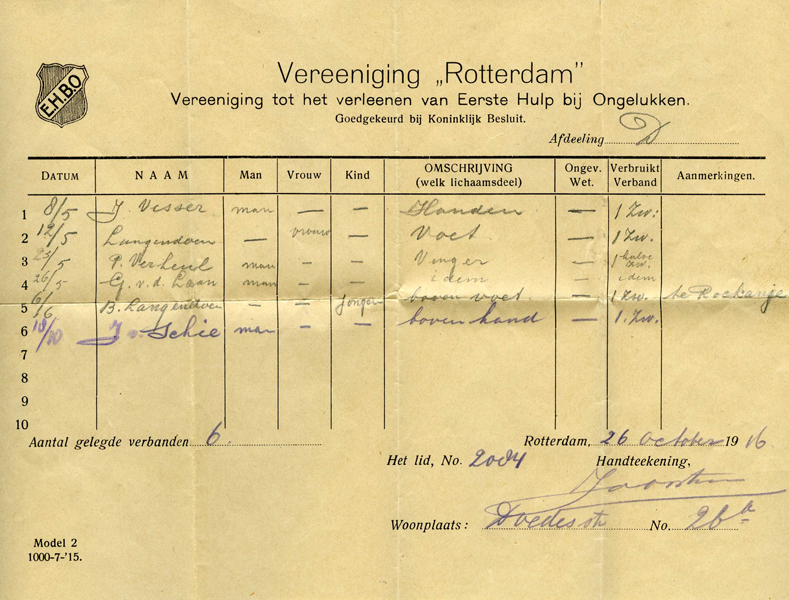 E.H.B.O.
Vereeniging „Rotterdam”
Vereeniging tot het verleenen van Eerste Hulp bij Ongelukken.
Goedgekeurd bij Koninklijk Besluit.
Afdeeling D
DATUM NAAM Man Vrouw Kind OMSCHRIJVING (welk lichaamsdeel) Ongev. Wet. Verbruikt Verband Aanmerkingen.
1 8/5 J. Visser man — — Handen — 1 Zw.
2 12/5 Langendoen — vrouw — Voet — 1 Zw.
3 23/5 P. Verheul man — — Vinger — 1 halve Zw.
4 26/5 G. v. d. Laan man — — idem — idem
5 6/6 B. Langendoen — — jongen boven voet — 1 Zw. te Rockanje
6 18/10 J. v. Schie man — — boven hand — 1. Zw.
7
8
9
10
Aantal gelegde verbanden 6.
Rotterdam, 26 October 1916
Het lid, No. 2084 Handteekening,
Woonplaats: Doedesstr No. 26a
Model 2
1000-7-'15.